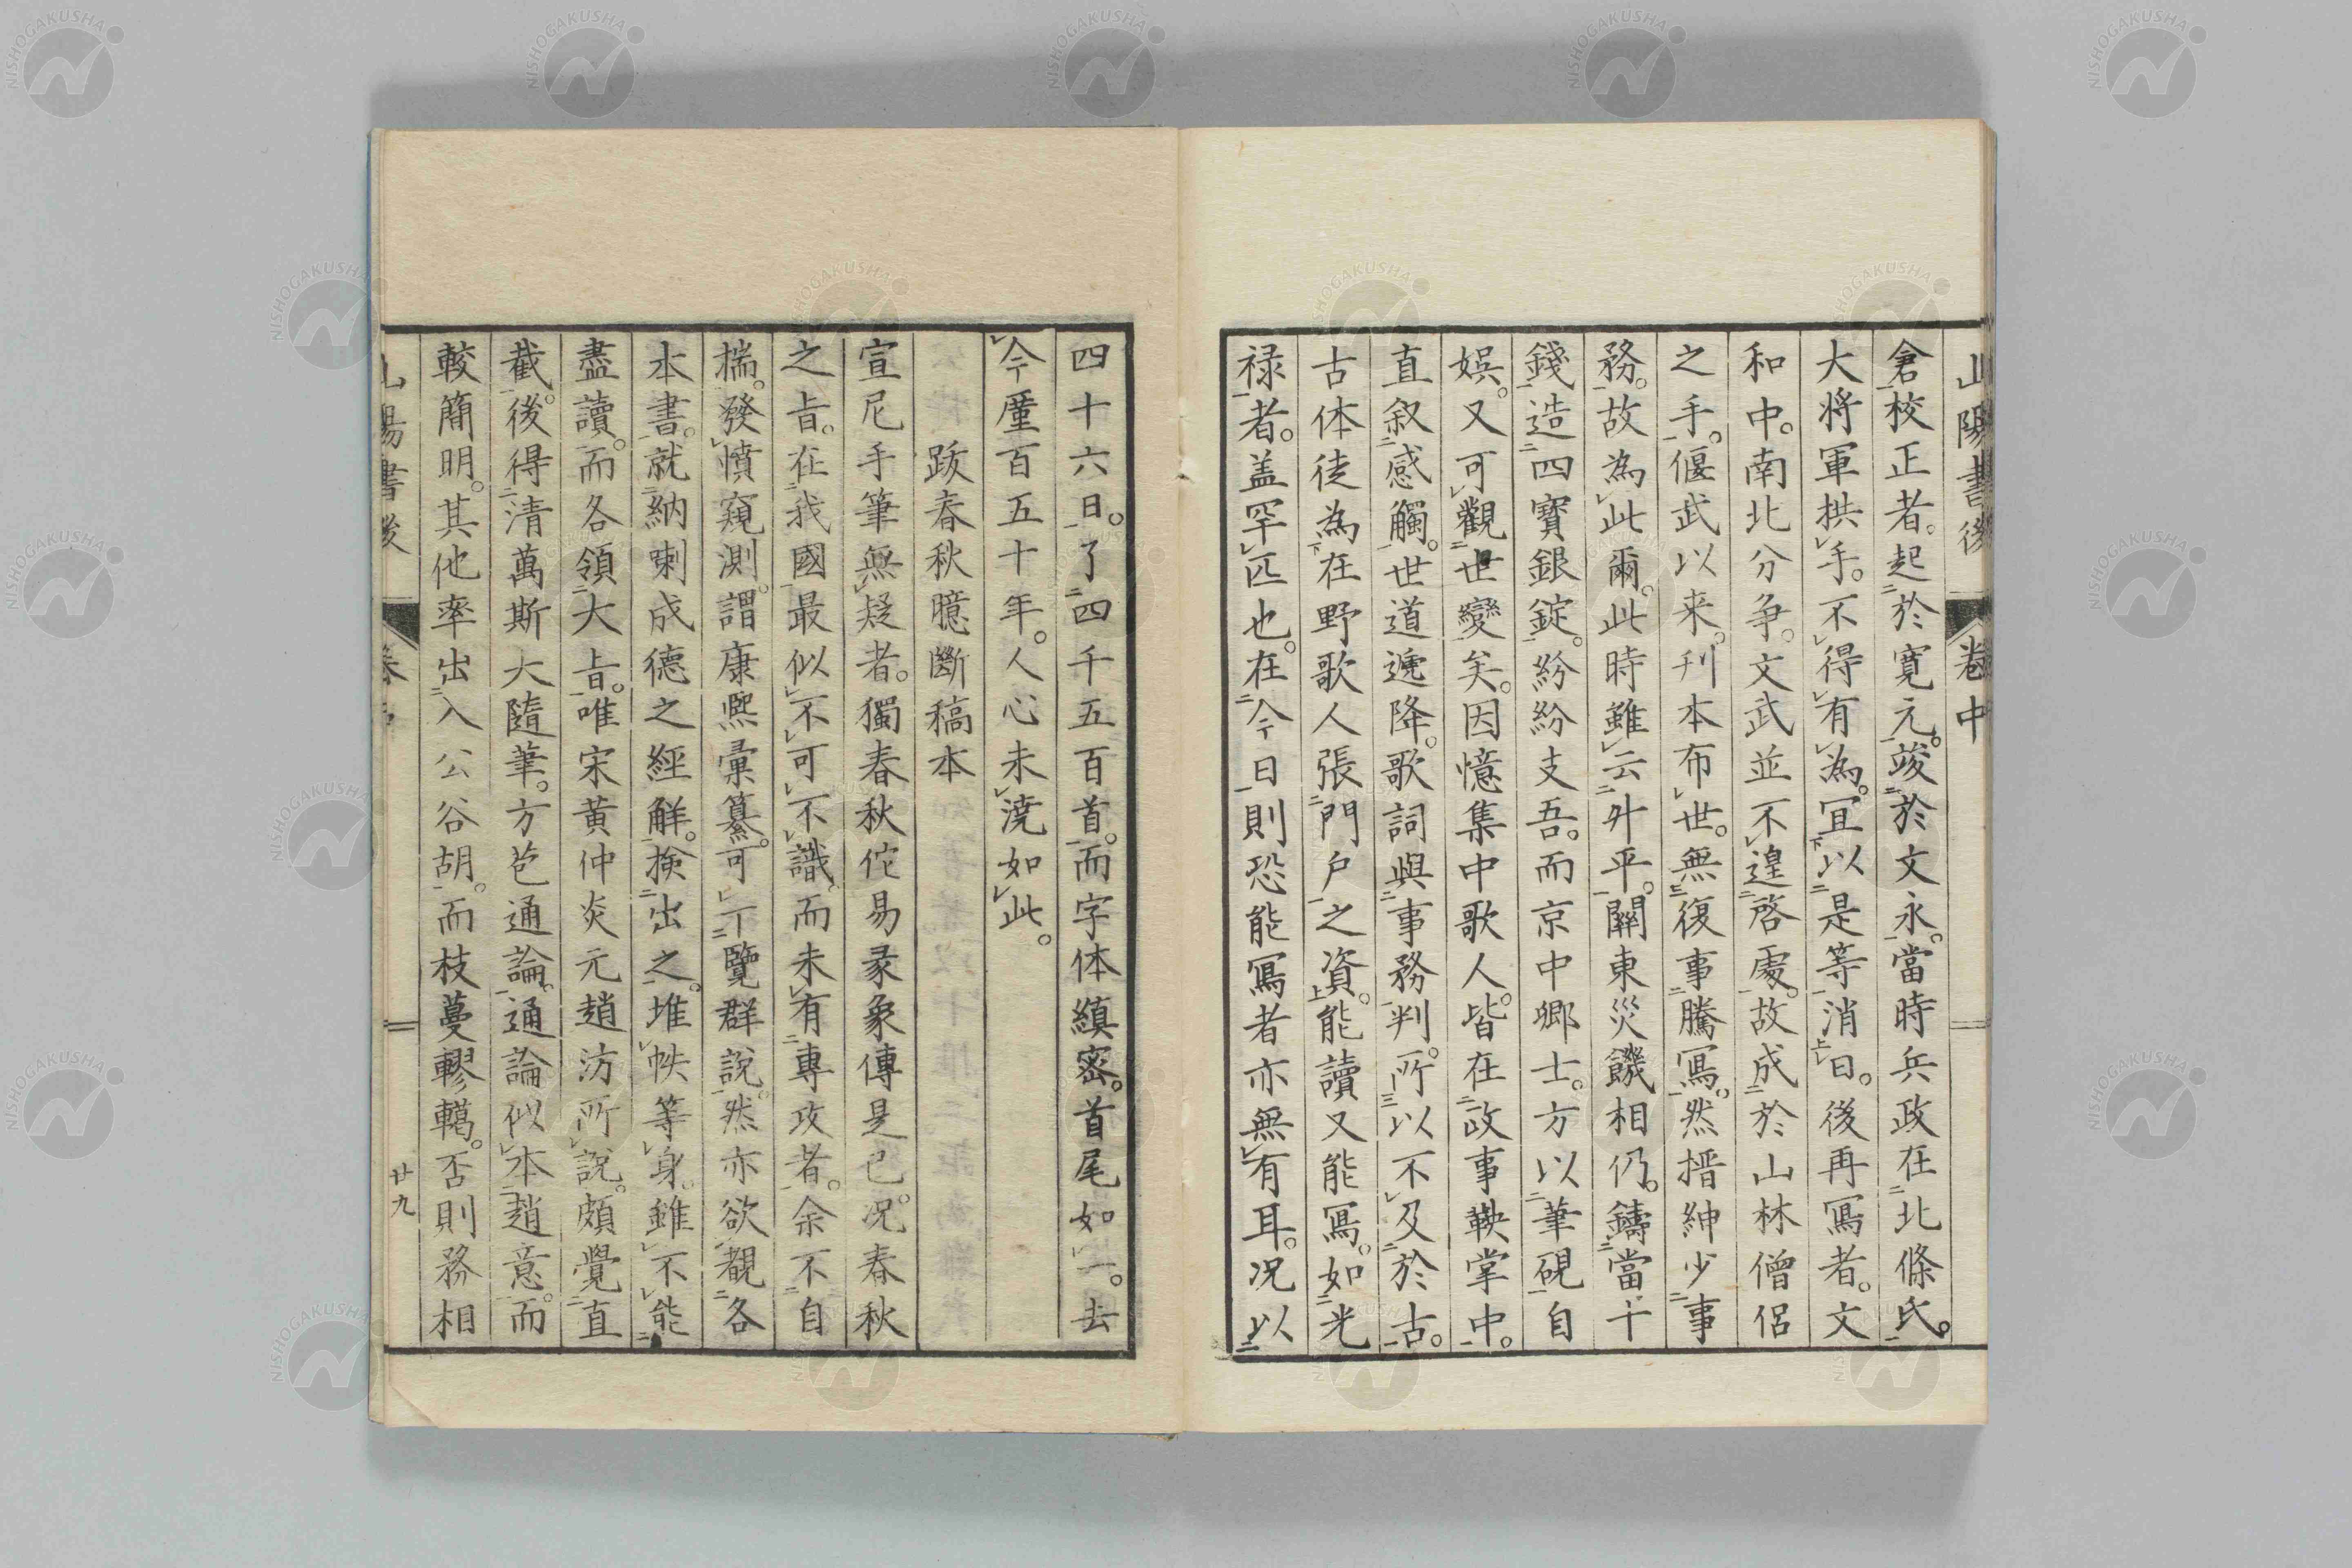 山陽書後 卷中
倉校正者。起於寛元。竣於文永。當時兵政在北條氏。
大将軍拱手。不得有為。冝以是等消日。後再冩者。文
和中。南北分争。文武並不遑啓處。故成於山林僧侶
之手。偃武以来。刋本布世。無復事騰冩。然搢紳少事
務。故為此爾。此時雖云升平。關東災饑相仍。鑄當十
錢造四寳銀錠。紛紛支吾。而京中鄉士。方以筆硯自
娯。又可觀世變矣。因憶集中歌人。皆在政事鞅掌中。
直叙感觸。世道遞降。歌詞與事務判。所以不及於古。
古体徒為在野歌人張門户之資。能讀又能冩。如光
禄者。盖罕匹也。在今日則恐能冩者亦無有耳。况以
四十六日。了四千五百首。而字体縝密。首尾如一。去
今廑百五十年。人心未澆如此。
跋春秋臆斷稿本
宣尼手筆無疑者。獨春秋佗易彖象傳是已。况春秋
之㫖。在我國最似不可不識。而未有專攻者。余不自
揣。發憤窺測。謂康熈彙纂。可一覽群說。然亦欲覩各
本書。就納喇成德之經解。捡出之。堆帙等身。雖不能
盡讀。而各領大㫖。唯宋黄仲炎元趙汸所說。頗覺直
截。後得清萬斯大隨筆。方苞通論。通論似本趙意。而
較簡明。其他率出入公谷胡。而枝蔓轇轕。否則務相
廿九